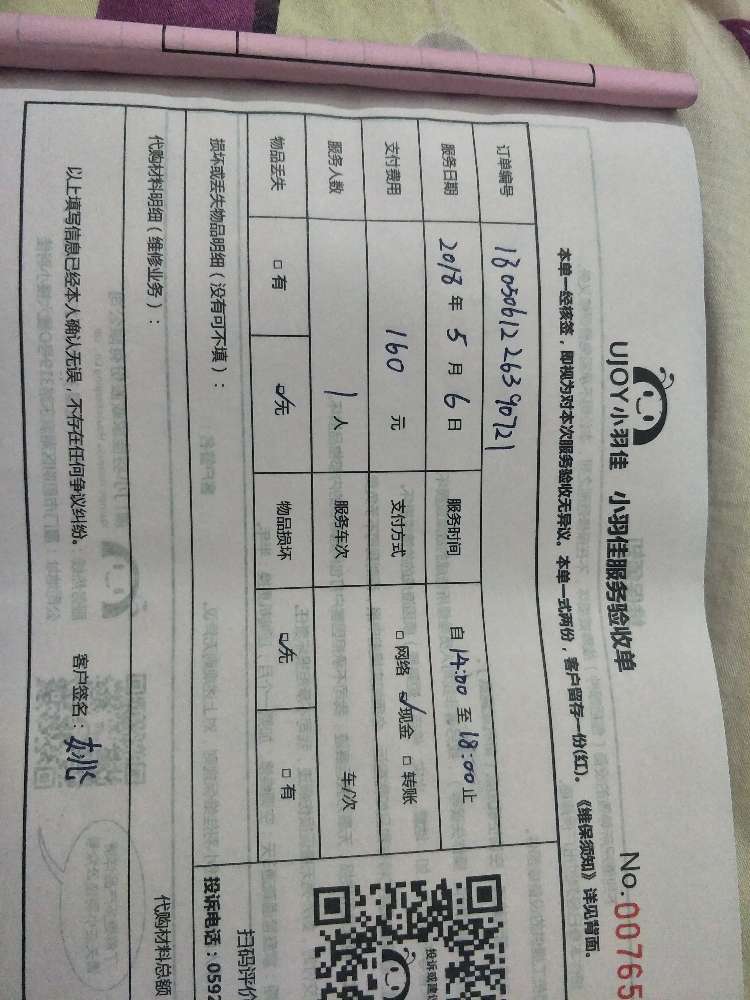 UJOY小羽佳 小羽佳服务验收单
No.00765
本单一经核签，即视为对本次服务验收无异议。本单一式两份，客户留存一份(红)。《维保须知》详见背面。
订单编号 1805061226390721
服务日期 2018年5月6日 服务时间 自14:00至18:00止
支付费用 160元 支付方式 □网络 ☑现金 □转账
服务人数 1人 服务车次 车/次
物品丢失 □有 ☑无 物品损坏 ☑无 □有
损坏或丢失物品明细（没有可不填）：
代购材料明细（维修业务）：
代购材料总额
以上填写信息已经本人确认无误，不存在任何争议纠纷。
客户签名：
投诉或建议
扫码评价
投诉电话：0592